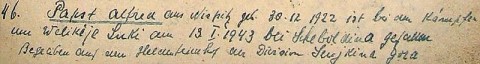 46. Papst Alfred aus Nispitz geb. 30.12.1922 ist bei den Kämpfen
um Welikije Luki am 13 I. 1943 bei Scheboldina gefallen
Begraben auf dem Heldenfriedhof der Division Senjkina gora